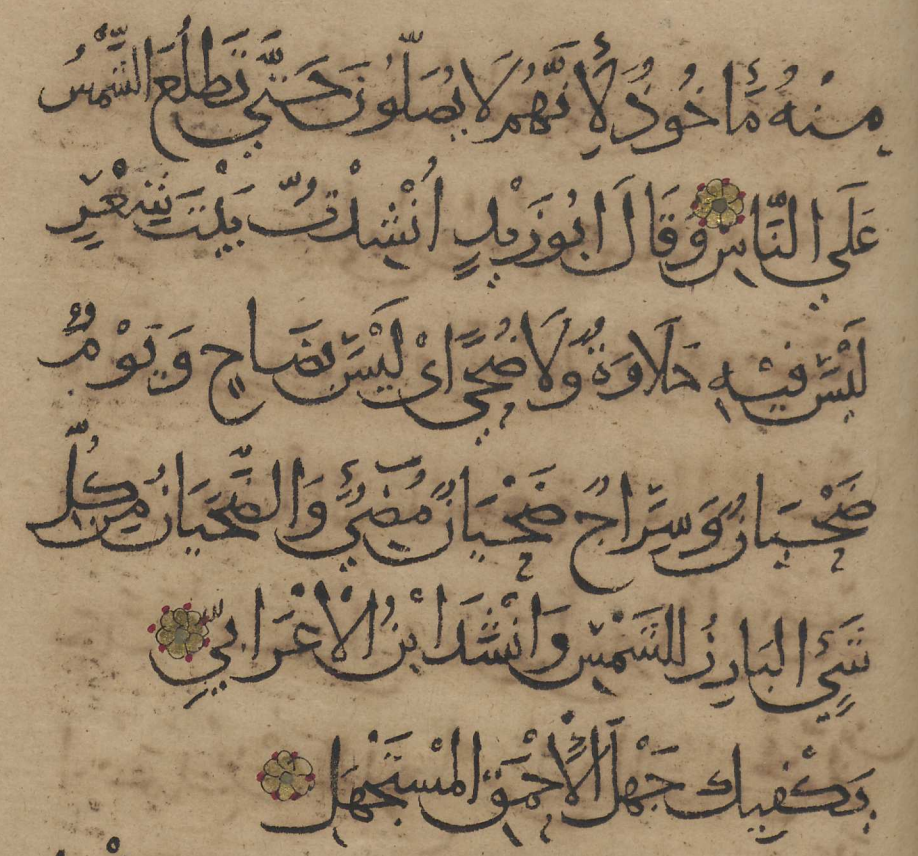 مِنْهُ مَأْخُوذٌ لِأَنَّهُمْ لَا يُصَلُّونَ حَتَّى تَطْلُعَ الشَّمْسُ
عَلَى النَّاسِ وَقَالَ ابُو زَيْدٍ أُنْشِدْتُ بَيْتَ شِعْرٍ
لَيْسَ فِيْهِ حَلَاوَةٌ وَلَا ضُحًى اىْ لَيْسَ بِضَاحٍ وَيَوْمٌ
ضَحْيَانٌ وَسِرَاجٌ ضَحْيَانٌ مُضِىءٌ وَالضَّحْيَانُ مِنْ كُلِّ
شَىْءٍ البَارِزُ للشَمْسِ وَانْشَدَ ابْنُ الْاعْرَابِيِّ
يَكْفِيك جَهْلَ الْأَحْمَقِ المُسْتَجْهَلِ